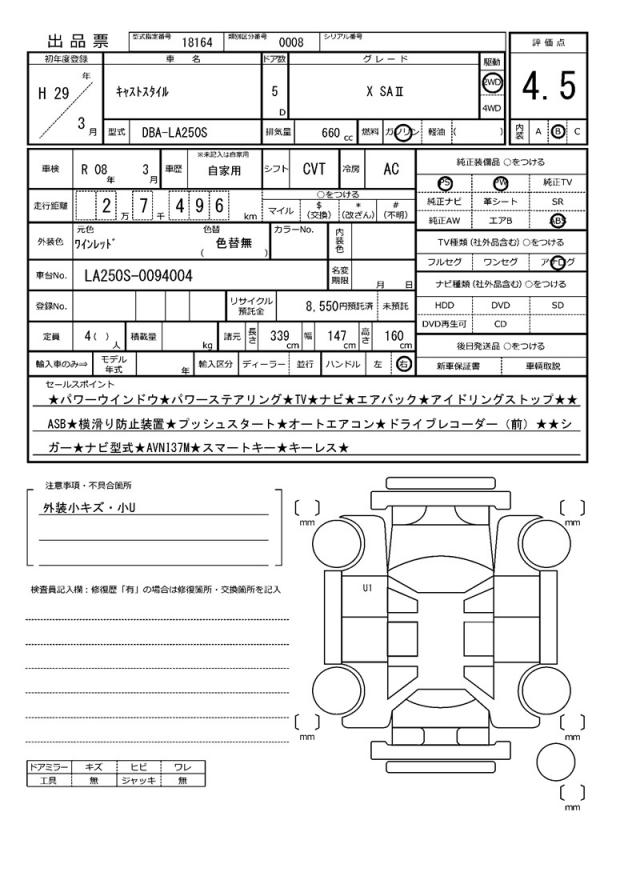 出品票 型式指定番号 18164 類別区分番号 0008 シリアル番号
評価点
4.5
初年度登録 車名 ドア数 グレード 駆動
H 29 年 キャストスタイル 5 D X SAⅡ 2WD
4WD
3 月 型式 DBA-LA250S 排気量 660 cc 燃料 ガソリン 軽油 ( )
内装 A B C
車検 R 08 年 3 月 車歴 ※未記入は自家用 自家用 シフト CVT 冷房 AC
走行距離 2 万 7 千 4 9 6 km
○をつける
マイル $(交換) *(改ざん) #(不明)
外装色 元色 ワインレッド 色替 ( 色替無 ) カラーNo. 内装色
車台No. LA250S-0094004 名変期限 月 日
登録No. リサイクル預託金 8,550円預託済 未預託
定員 4( ) 人 積載量 kg 諸元 長さ 339 cm 幅 147 cm 高さ 160 cm
輸入車のみ⇒ モデル年式 年 輸入区分 ディーラー 並行 ハンドル 左 右
純正装備品 ○をつける
PS PW 純正TV
純正ナビ 革シート SR
純正AW エアB ABS
TV種類 (社外品含む) ○をつける
フルセグ ワンセグ アナログ
ナビ種類 (社外品含む) ○をつける
HDD DVD SD
DVD再生可 CD
後日発送品 ○をつける
新車保証書 車輌取説
セールスポイント
★パワーウインドウ★パワーステアリング★TV★ナビ★エアバック★アイドリングストップ★★
ASB★横滑り防止装置★プッシュスタート★オートエアコン★ドライブレコーダー（前）★★シ
ガー★ナビ型式★AVN137M★スマートキー★キーレス★
注意事項・不具合箇所
外装小キズ・小U
検査員記入欄：修復歴「有」の場合は修復箇所・交換箇所を記入
mm
mm
U1
mm
mm
mm
ドアミラー キズ ヒビ ワレ
工具 無 ジャッキ 無